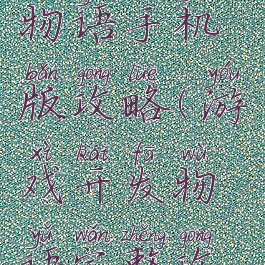 物语手机
bǎn gōng lüè yóu
版攻略(游
xì kāi fā wù
戏开发物
yǔ wán zhěng gōng
语完整攻